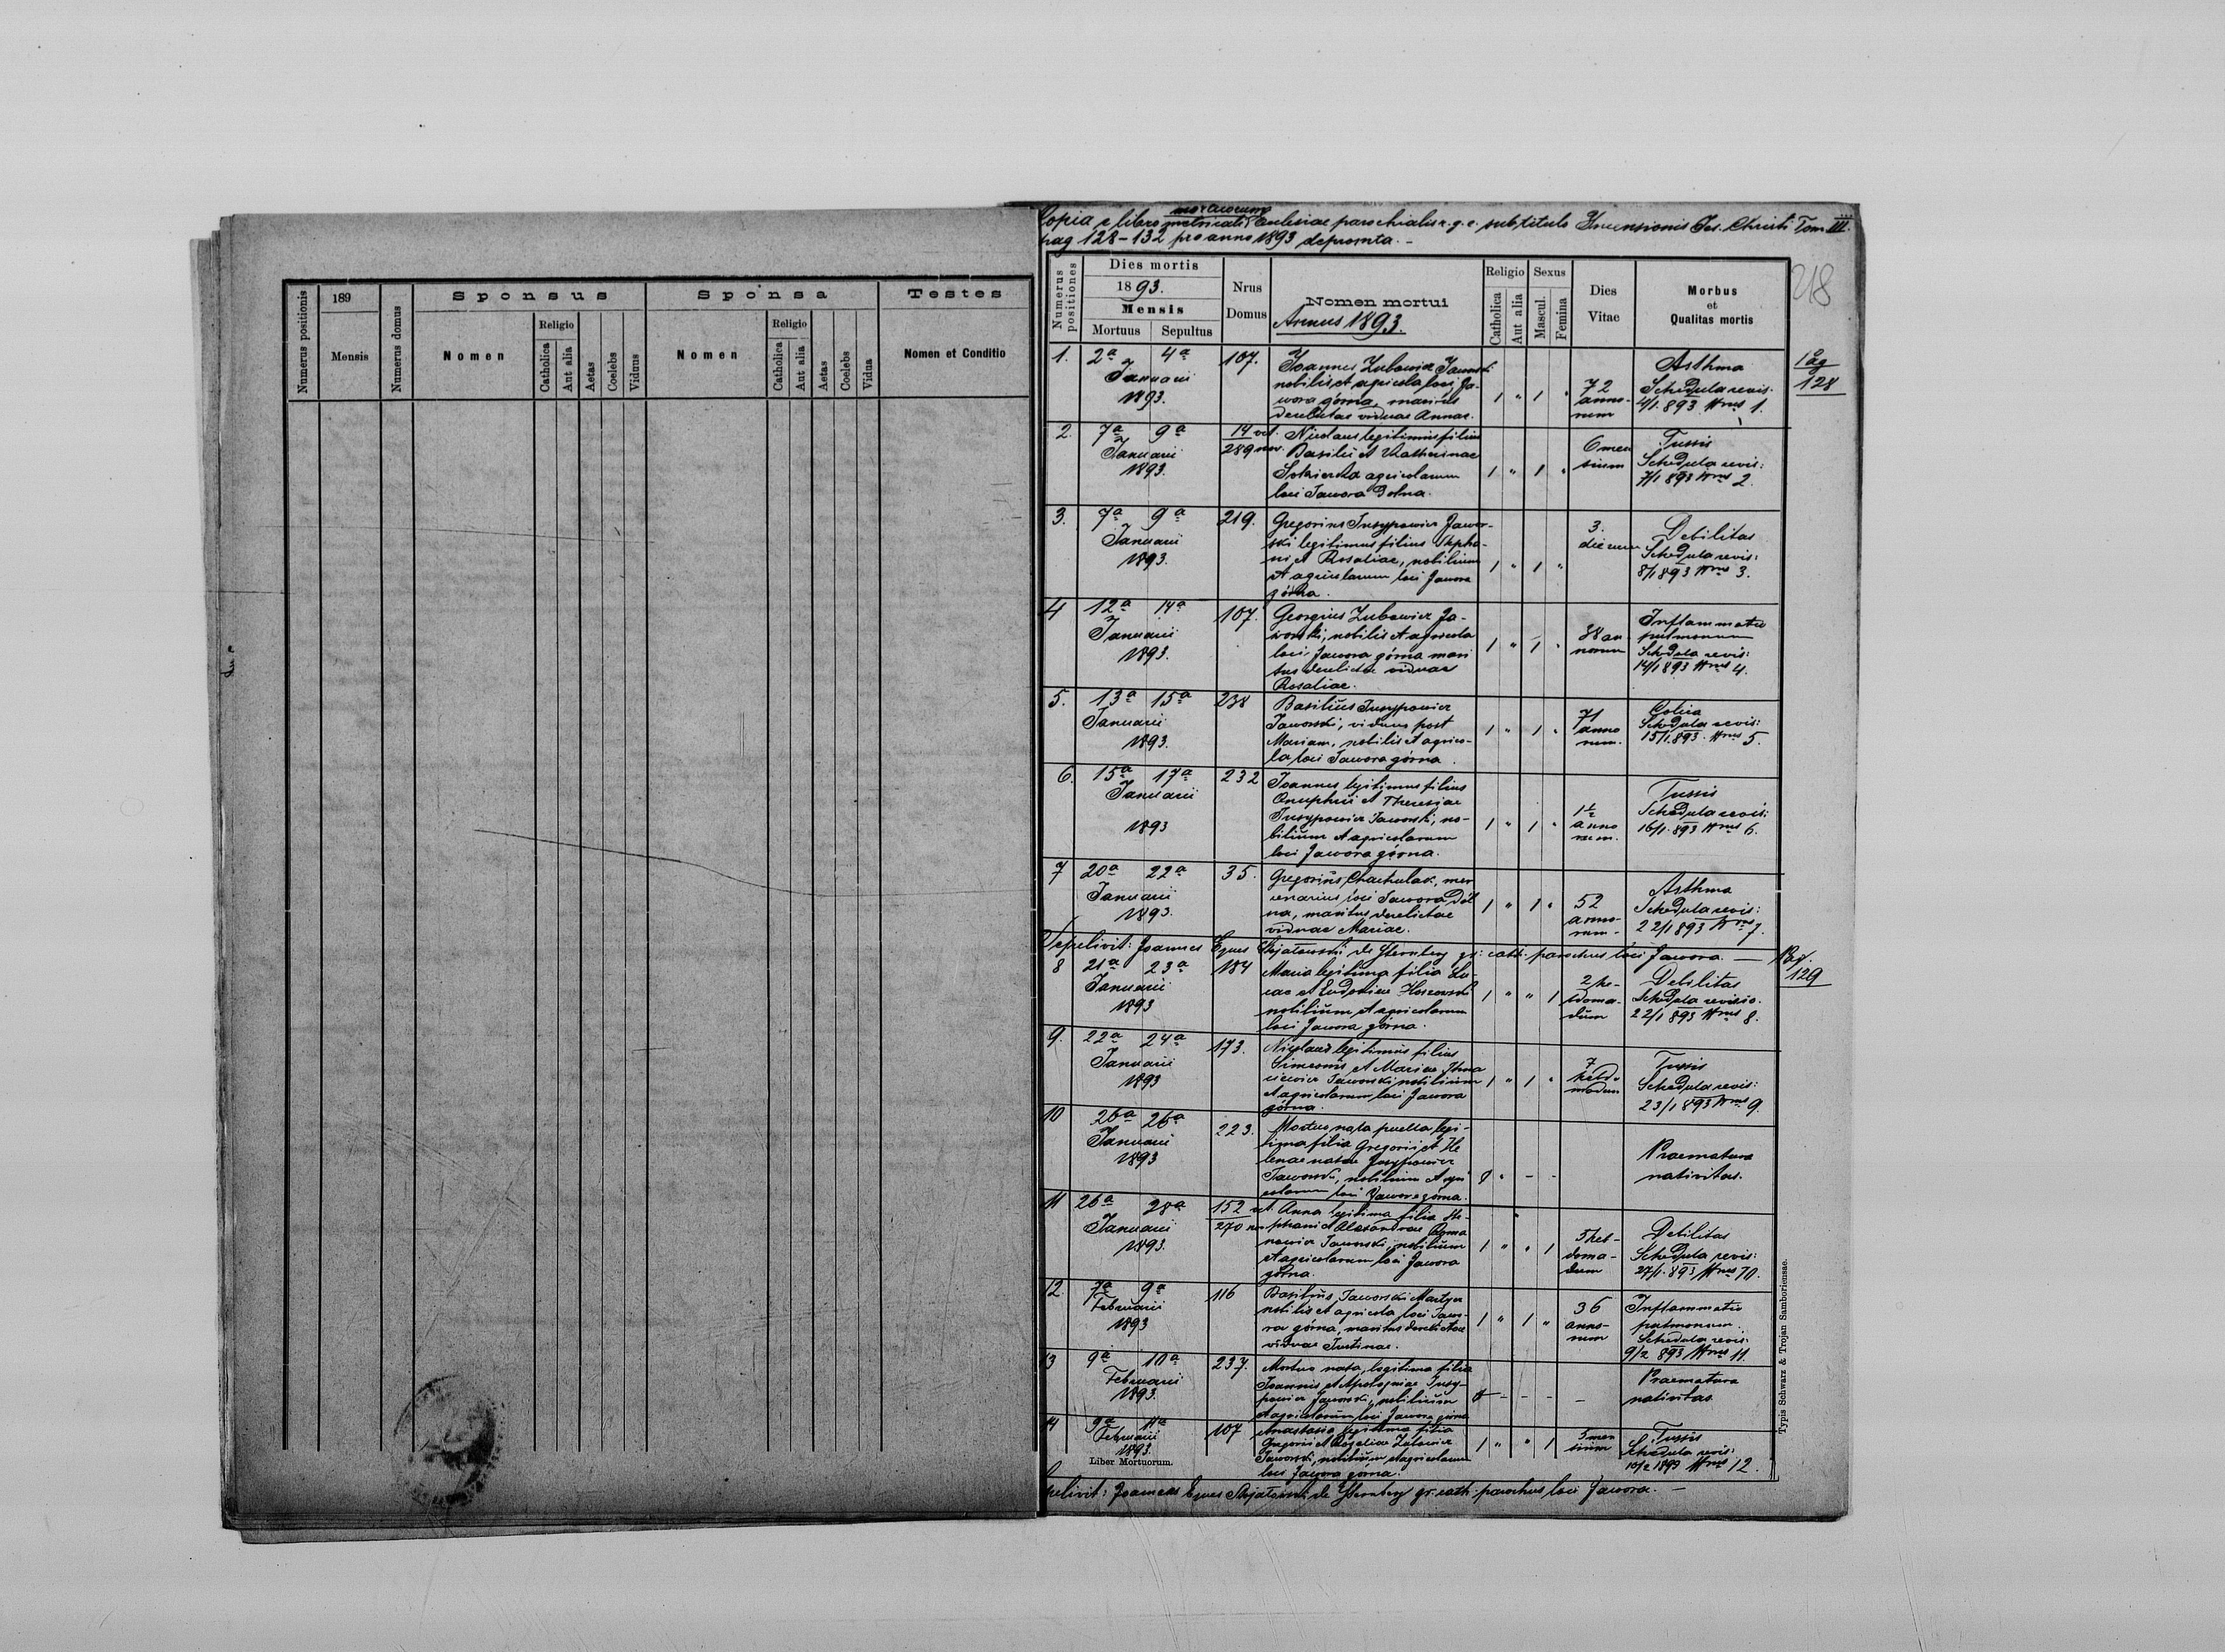 Numerus positionis
189
Mensis
Numerus domus
Sponsus
Nomen
Religio
Catholica
Aut alia
Aetas
Coelebs
Viduus
Sponsa
Nomen
Religio
Catholica
Aut alia
Aetas
Coelebs
Vidua
Testes
Nomen et Conditio
mortuorum
Copia e libro metricali Ecclesiae parochialis r. g. c. sub titulo Ascensionis Jes. Christi Tom III.
pag 128-132 pro anno 1893 depromta. -
218
Numerus positiones
Dies mortis
1893.
Mensis
Mortuus
Sepultus
Nrus
Domus
Nomen mortui
Annus 1893.
Religio
Catholica
Aut alia
Sexus
Mascul.
Femina
Dies
Vitae
Morbus
et
Qualitas mortis
Pag
128
1. 2a 4a 107.
Januarii
1893.
Joannes Zubowicz Jaworski
nobilis et agricola loci Ja-
wora górna, maritus
derelictae viduae Annae.
1 " 1 "
72
anno-
rum
Asthma
Schedula revis:
4/1.893 Nrus 1.
2. 7a 9a 14 vet.
289 nov.
Januarii
1893.
Nicolaus legitimus filius
Basilii et Katherinae
agricolarum
loci Jawora Dolna.
1 " 1 "
6 men
sium
Tussis
Schedula revis:
7/1 893 Nrus 2.
3. 7a 9a 219.
Januarii
1893.
Gregorius Jusypowicz Jawor-
ski legitimus filius Stepha-
ni et Rosaliae, nobilium
et agricolarum loci Jawora
górna.
1 " 1 "
3.
dierum
Debilitas
Schedula revis:
8/1 893 Nrus 3.
4 12a 14a 107.
Januarii
1893.
Georgius Zubowicz Ja-
worski, nobilis et agricola
loci Jawora górna mari
tus derelictae viduae
Rosaliae.
1 " 1 "
38 an
norum
Inflammatio
pulmonum
Schedula revis:
14/1 893 Nrus 4.
5. 13a 15a 238
Januarii
1893.
Basilius Jusypowicz
Jaworski, viduus post
Mariam, nobilis et agrico-
la loci Jawora górna.
1 " 1 "
71
anno
rum.
Colica
Schedula revis:
15/1.893. Nrus 5.
6. 15a 17a 232
Januarii
1893
Joannes legitimus filius
Onuphrii et Theresiae
Jusypowicz Jaworski, no-
bilium et agricolarum
loci Jawora górna.
1 " 1 "
1½
anno
rum.
Tussis
Schedula revis:
16/1.893 Nrus 6.
7 20a 22a 35.
Januarii
1893.
Gregorius Chachulak, mer
cenarius loci Jawora Dol
na, maritus derelictae
viduae Mariae.
1 " 1 "
52
anno-
rum-
Asthma
Schedula revis:
22/1 893 Nrus 7.
Sepelivit: Joannes Eques de Sternberg gr: cath: parochus loci Jawora. -
Pag.
129
8 21a 23a 184
Januarii
1893
Maria legitima filia Lu-
cae et Eudoxiae
nobilium et agricolarum
loci Jawora górna.
1 " " 1
2 he-
bdoma-
dum
Debilitas
Schedula revisio.
22/1 893 Nrus 8.
9. 22a 24a 173.
Januarii
1893
Nicolaus legitimus filius
Simeonis et Mariae
Jaworski nobilium
et agricolarum loci Jawora
górna.
1 " 1 "
7
hebdo
madum
Tussis
Schedula revis:
23/1 893 Nrus 9.
10 26a 26a 223.
Januarii
1893
Mortuo nata puella legi-
tima filia Gregorii et He
lenae natae Jusypowicz
Jaworski, nobilium et agri
colarum loci Jawora górna.
Praematura
nativitas.
11 26a 28a 152 vet.
270 nov
Januarii
1893.
Anna legitima filia Ste-
phani et Alexandrae
Jaworski, nobilium
et agricolarum loci Jawora
górna.
1 " " 1
5 heb-
doma-
dum
Debilitas
Schedula revis:
27/1.893 Nrus 10.
12. 7a 9a 116
Februarii
1893
Basilius Jaworski Martyn
nobilis et agricola loci Jawo-
ra górna, maritus derelictae
viduae Justinae.
1 " 1 "
36
anno-
rum
Inflammatio
pulmonum.
Schedula revis:
9/2 893 Nrus 11.
13 9a 10a 237.
Februarii
1893.
Mortuo nata, legitima filia
Joannis et Apoloniae Jusy-
powicz Jaworski, nobilium
et agricolarum loci Jawora górna
Praematura
nativitas
14 9a 11a 107
Februarii
1893.
Anastasia legitima filia
Gregorii et Rosaliae Zubowicz
Jaworski, nobilium et agricolarum
loci Jawora górna.
1 " " 1
5 men
sium
Tussis
Schedula revis:
10/2 1893 Nrus 12.
Liber Mortuorum.
pelivit: Joannes Eques de Sternberg gr. cath. parochus loci Jawora. -
Typis Schwarz & Trojan Samboriensae.